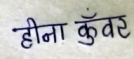 हीना कुँवर